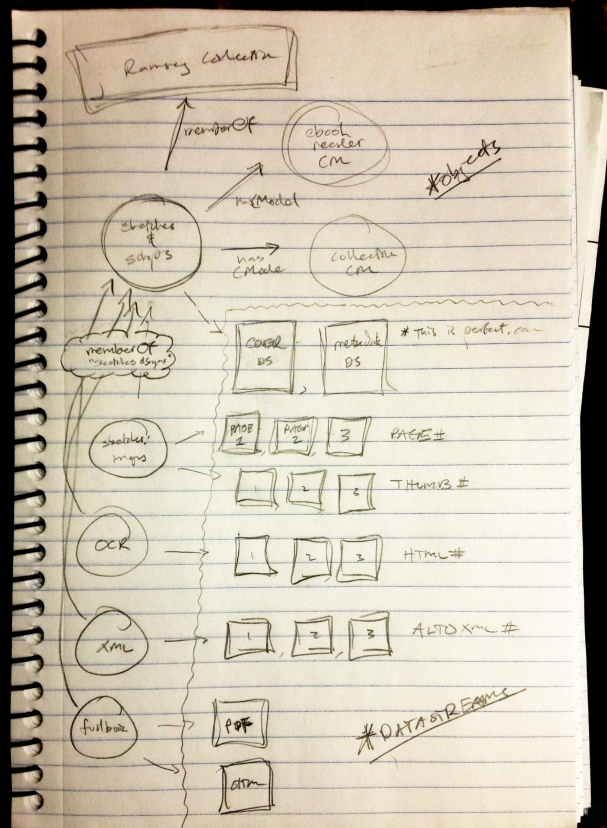 Ramsey Collection
memberOf
ebook
reader
CM
*objects
hasCModel
sketches
&
scraps
has
CModel
collection
CM
memberOf
COVER
DS
,
metadata
DS
* This is perfect, can
sketches:
imgs
PAGE
1
,
PAGE
2
,
3
PAGE#
1
,
2
3
THUMB#
OCR
1
,
2
,
3
HTML#
XML
1
,
2
,
3
ALTO XML#
fullbook
PDF
*DATASTREAMS